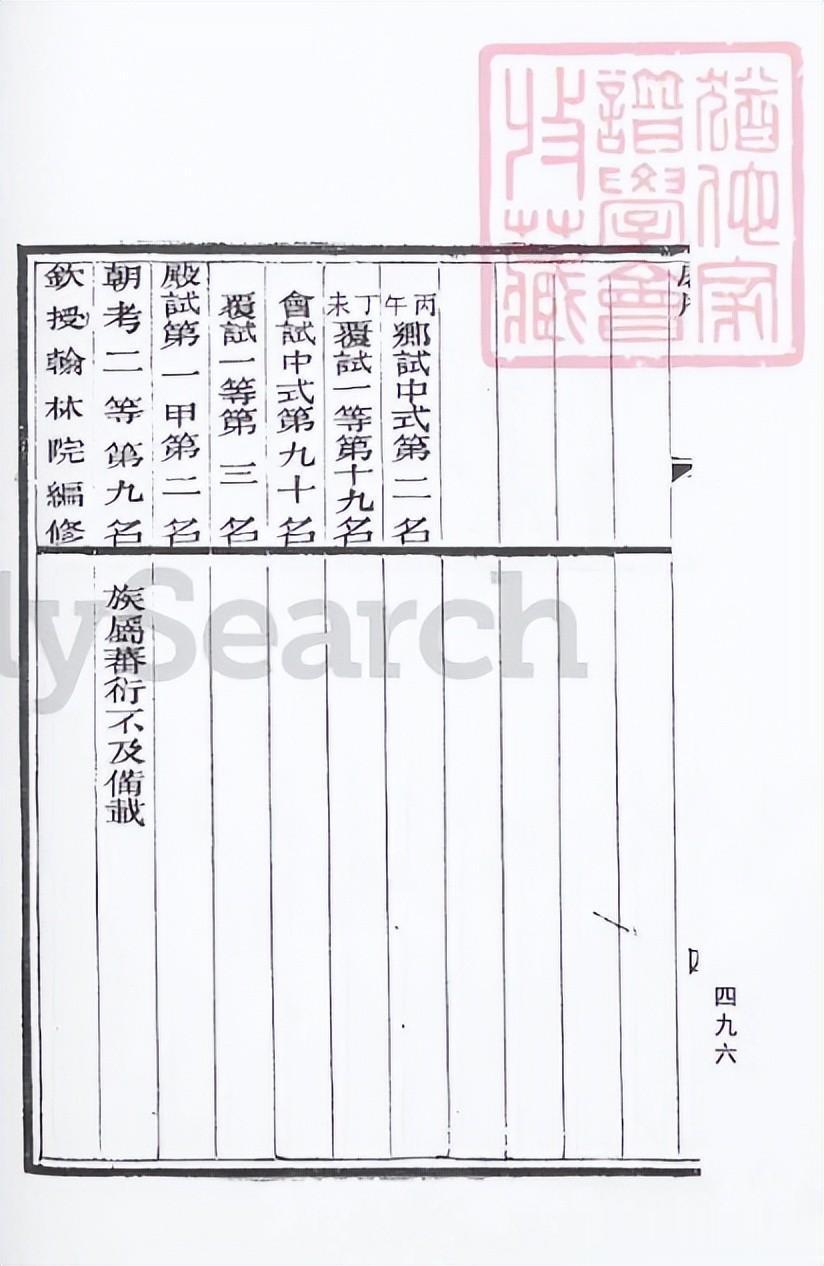 丙午鄉試中式第二名
丁未覆試一等第十九名
會試中式第九十名
覆試一等第三名
殿試第一甲第二名
朝考二等第九名
欽授翰林院編修
族屬蕃衍不及備載
四九六
猶他家
譜學會
收藏
lySearch